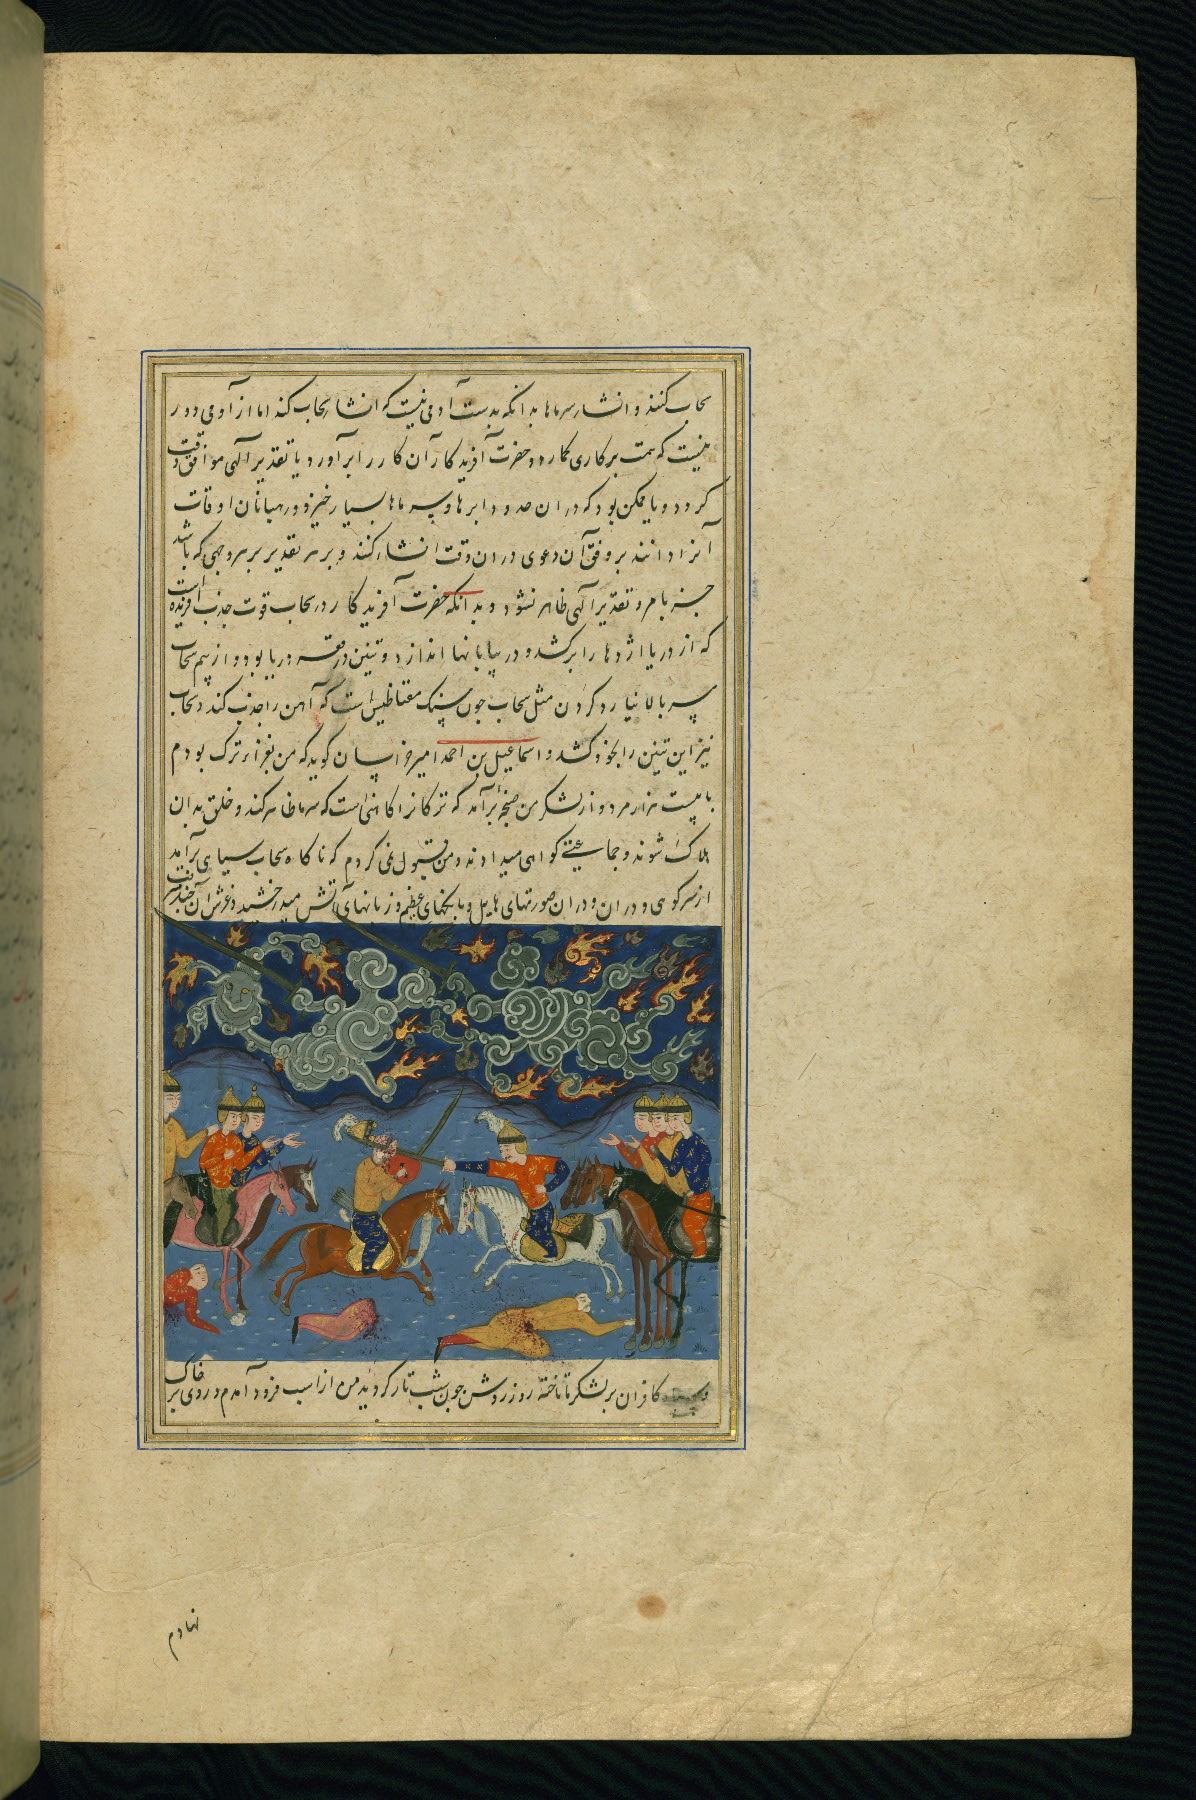 سحاب کنند و انشاء سرماها بدانکه بدست آدمی نیست که انشاء سحاب کند اما از آدمی دور
نیست که همت بر کاری کمارد و حضرت آفرید کار آن کار را برآورد یا تقدیر آلهی موافق
کردد و یا ممکن بود که در ان حدود ابرها و سرماها بسیار خیزد و رهبانان اوقات
آنرا دانند بر وفق آن دعوی در ان وقت انشاء کنند و بر هر تقدیر بر هر وجهی که باشد
جز بامر و تقدیر آلهی ظاهر نشود و بدانکه حضرت آفرید کار در سحاب قوت جذب آفریده است
که از دریا اژدها را برکشد و در بیابانها اندازد و تنین در قعر دریا بود و از بیم سحاب
سر بالا نیارد کردن مثل سحاب چون سنک مغناطیس است که آهن را جذب کند و سحاب
نیز این تنین را بخود کشد و اسماعیل بن احمد امیر خراسان کوید که من بغزاء ترک بودم
با بیست هزار مرد و از لشکر من برآمد که ترکانرا کاهنی است که سرما ظاهر کند و خلق بدان
هلاک شوند و جماعتی کواهی میدادند و من قبول نمی کردم که ناکاه سحاب سیاهی برآمد
از سر کوهی و در ان صورتهای هایل و بانکهای عظیم و زبانهای آتش میدرخشید و غرش آن
کافران بر لشکر ما تاخته روز روشن چون شب تار کردید من از اسب فرود آمدم و روی بر خاک
نهادم